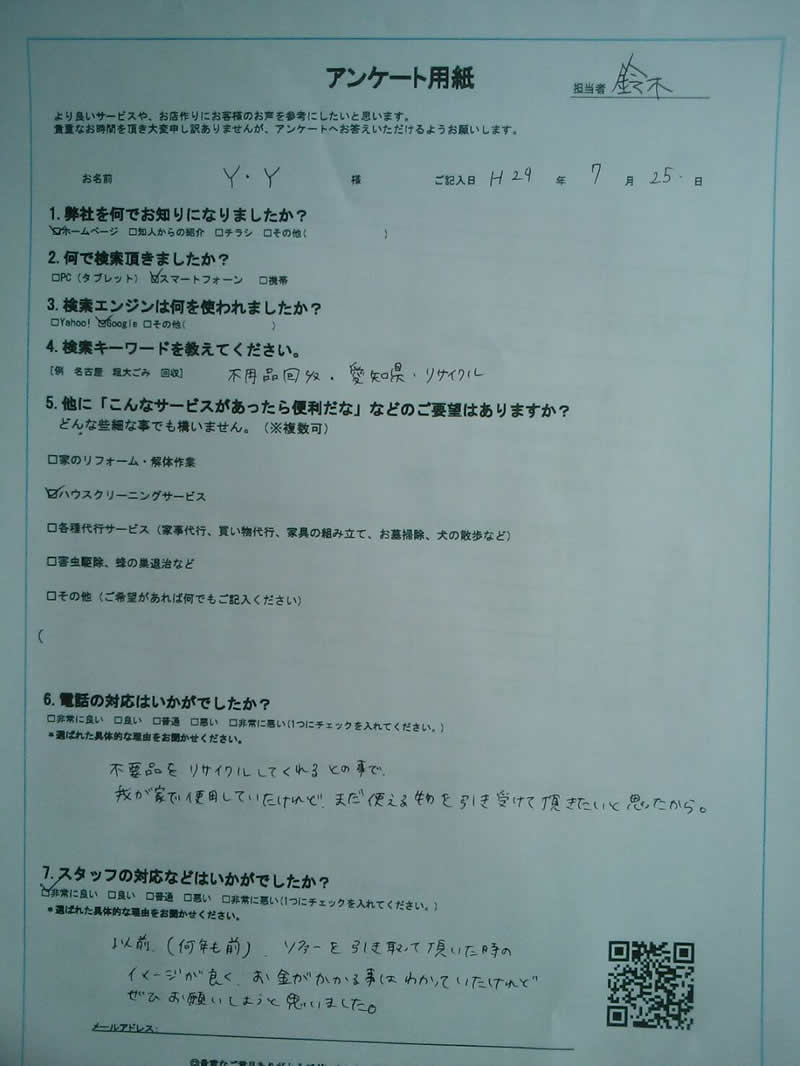 アンケート用紙
担当者 鈴木
より良いサービスや、お店作りにお客様のお声を参考にしたいと思います。
貴重なお時間を頂き大変申し訳ありませんが、アンケートへお答えいただけるようお願いします。
お名前 Y・Y 様 ご記入日 H29 年 7 月 25 日
1.弊社を何でお知りになりましたか？
☑ホームページ □知人からの紹介 □チラシ □その他( )
2.何で検索頂きましたか？
□PC（タブレット） ☑スマートフォーン □携帯
3.検索エンジンは何を使われましたか？
□Yahoo! ☑Google □その他( )
4.検索キーワードを教えてください。
[例 名古屋 粗大ごみ 回収] 不用品回収・愛知県・リサイクル
5.他に「こんなサービスがあったら便利だな」などのご要望はありますか？
どんな些細な事でも構いません。（※複数可）
□家のリフォーム・解体作業
☑ハウスクリーニングサービス
□各種代行サービス（家事代行、買い物代行、家具の組み立て、お墓掃除、犬の散歩など）
□害虫駆除、蜂の巣退治など
□その他（ご希望があれば何でもご記入ください）
(
6.電話の対応はいかがでしたか？
□非常に良い □良い □普通 □悪い □非常に悪い(1つにチェックを入れてください。)
*選ばれた具体的な理由をお聞かせください。
不要品をリサイクルしてくれるとの事で、
我が家で使用していたけれど、まだ使える物を引き受けて頂きたいと思ったから。
7.スタッフの対応などはいかがでしたか？
☑非常に良い □良い □普通 □悪い □非常に悪い(1つにチェックを入れてください。)
*選ばれた具体的な理由をお聞かせください。
以前、(何年も前)、ソファーを引き取って頂いた時の
イメージが良く、お金がかかる事はわかっていたけれど
ぜひお願いしようと思いました。
メールアドレス: